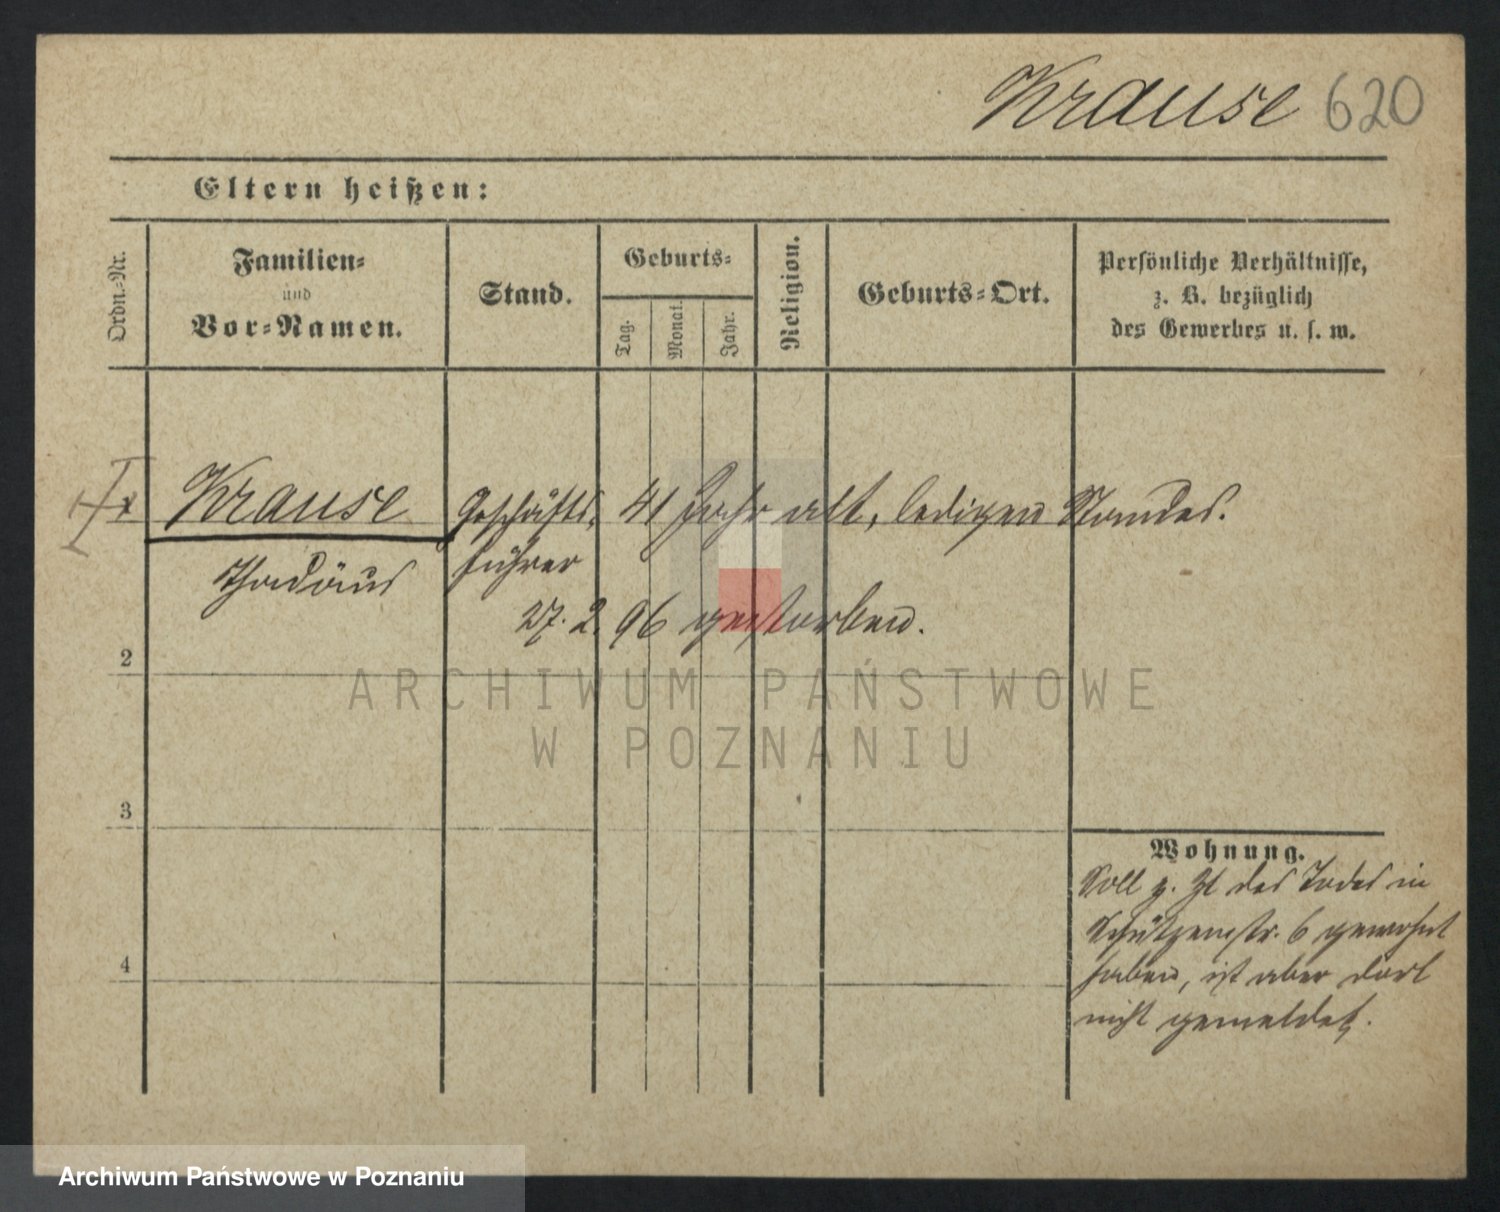 Krause 620
Eltern heißen:
Ordn.-Nr.
Familien-
und
Vor-Namen.
Stand.
Geburts-
Tag.
Monat.
Jahr.
Religion.
Geburts-Ort.
Persönliche Verhältnisse,
z. B. bezüglich
des Gewerbes u. s. w.
Krause Geschäfts- 41 Jahr alt, ledigen Standes.
Thadäus führer
27. 2. 96 gestorben.
2
ARCHIWUM PAŃSTWOWE
W POZNANIU
3
Wohnung.
Soll z. Zt des Todes in
Schützenstr. 6 gewohnt
haben, ist aber dort
nicht gemeldet.
4
Archiwum Państwowe w Poznaniu